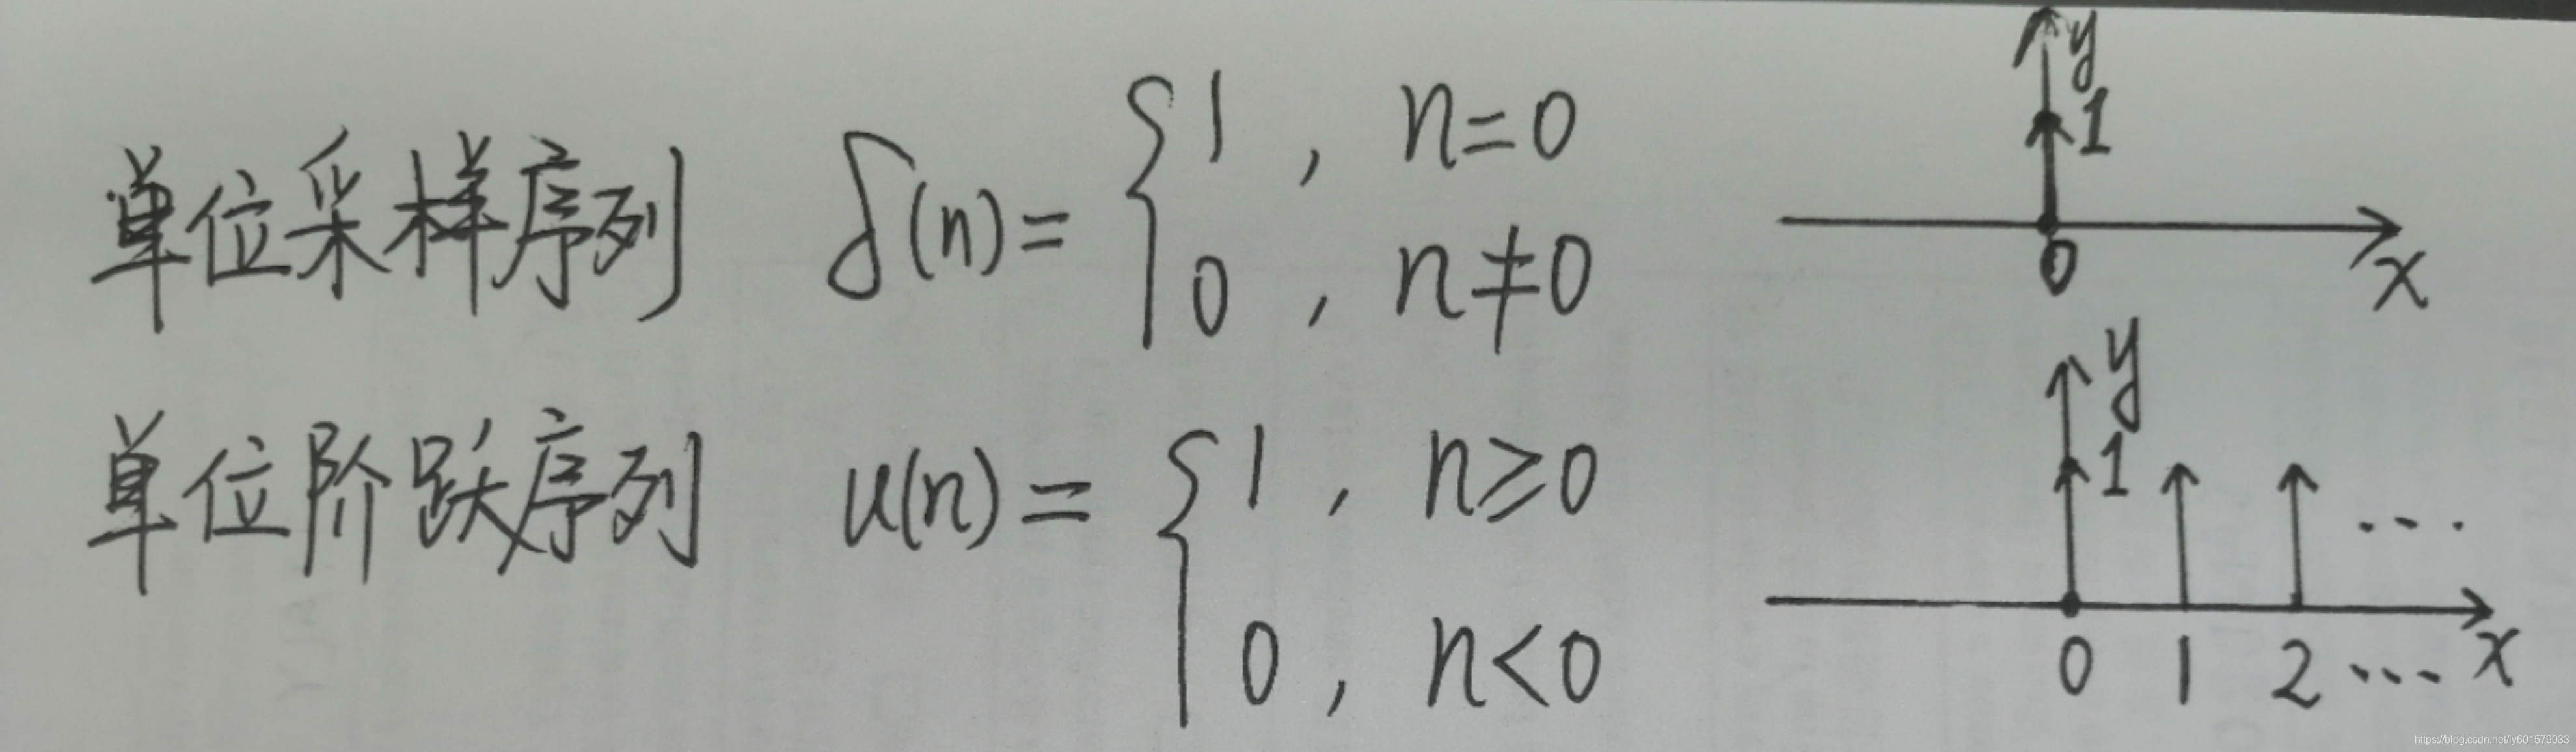 y
1
单位采样序列 δ(n)= { 1, n=0
0, n≠0
0
x
y
1
单位阶跃序列 u(n)= { 1, n≥0
0, n<0
...
0 1 2 ... x
https://blog.csdn.net/ly601579033